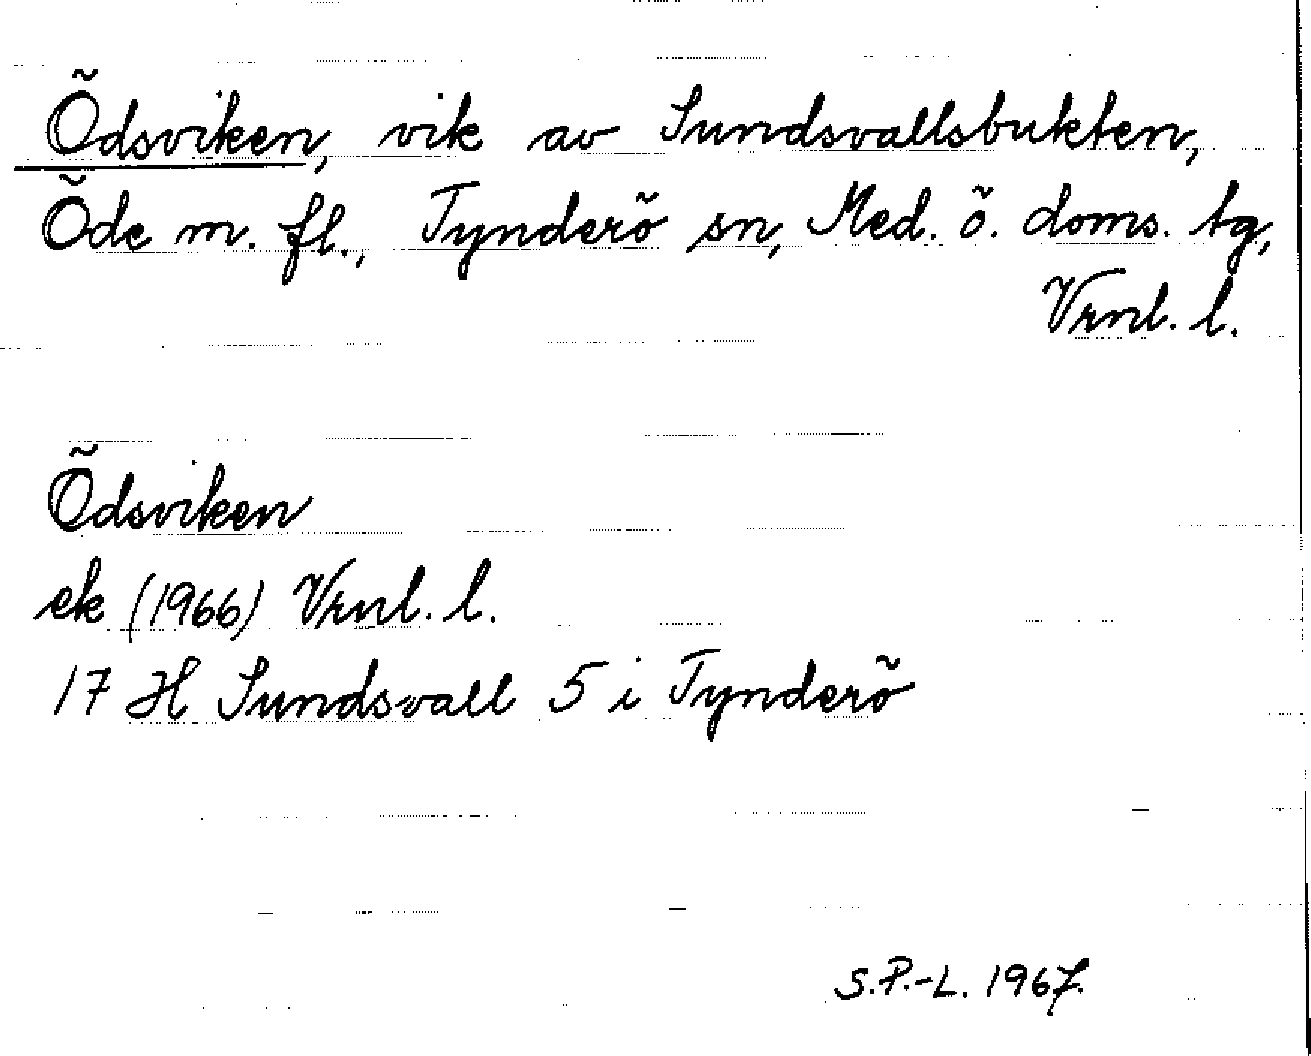 Ödsviken, vik av Sundsvallsbukten,
Öde m. fl., Tynderö sn, Med. ö. doms. tg,
Vrnl. l.
Ödsviken
ek (1966) Vrnl. l.
17 H Sundsvall 5 i Tynderö
S.P.-L. 1967.